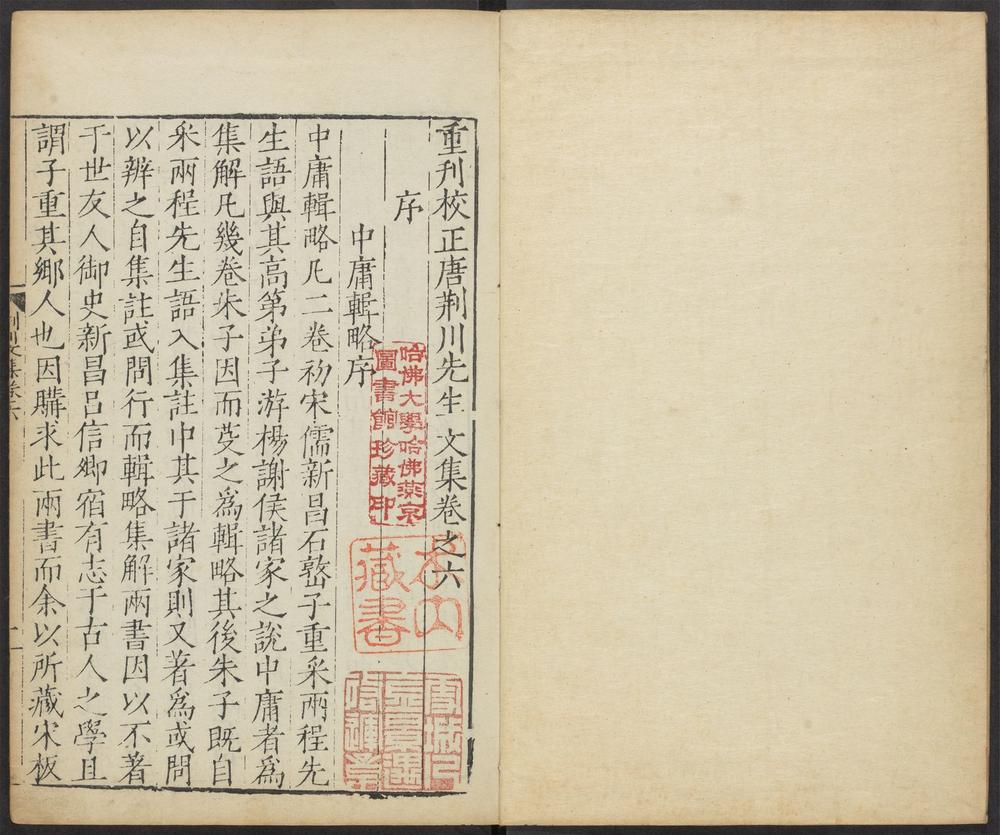 重刊校正唐荊川先生文集卷之六
序
中庸輯略序
中庸輯略凡二卷初宋儒新昌石𡼖子重采兩程先
生語與其高第弟子游楊謝侯諸家之說中庸者為
集解凡幾卷朱子因而芟之為輯略其後朱子既自
采兩程先生語入集註中其于諸家則又著為或問
以辨之自集註或問行而輯略集解兩書因以不著
于世友人御史新昌呂信卿宿有志于古人之學且
謂子重其鄉人也因購求此兩書而余以所藏宋板
哈佛大學哈佛燕京
圖書館珍藏印
藏書